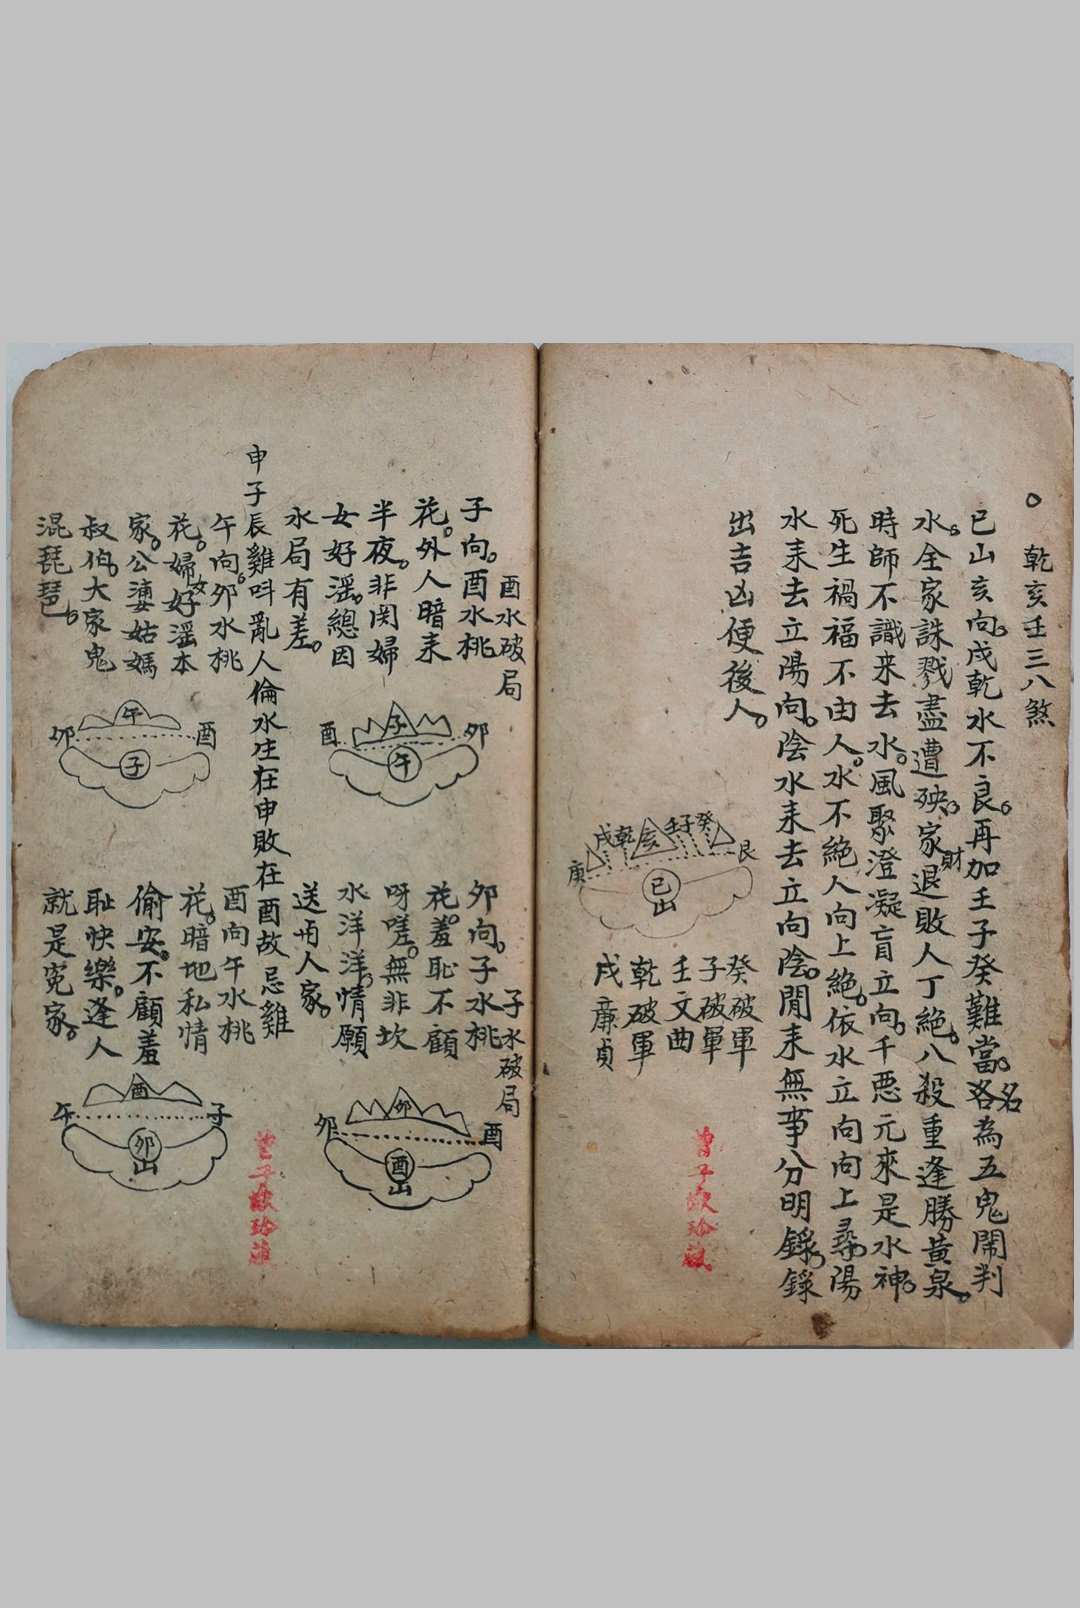 乾亥壬三八煞
巳山亥向戌乾水不良再加壬子癸難當名為五鬼鬧判
水全家誅戮盡遭殃家財退敗人丁絕八殺重逢勝黄泉
時師不識来去水風聚澄凝盲立向千惡元來是水神
死生禍福不由人水不絕人向上絕依水立向向上尋陽
水耒去立陽向陰水耒去立向陰閒耒無事分明錄錄
出吉凶便後人
庚 戌 乾 亥 壬 子 癸 艮
巳山
癸破軍
子破軍
壬文曲
乾破軍
戌廉貞
酉水破局
子向酉水桃
花外人暗耒
半夜非関婦
女好淫總因
水局有差
酉 子 卯
午
子水破局
卯向子水桃
花羞恥不顧
呀嗟無非坎
水洋洋情願
送冇人家
卯 卯 酉
酉山
申子辰雞呌亂人倫水生在申敗在酉故忌雞
午向卯水桃
花婦女好淫本
家公婆姑媽
叔伯大家鬼
混琵琶
卯 午 酉
子
酉向午水桃
花暗地私情
偷安不顧羞
恥快樂逢人
就是冤家
午 酉 子
卯山